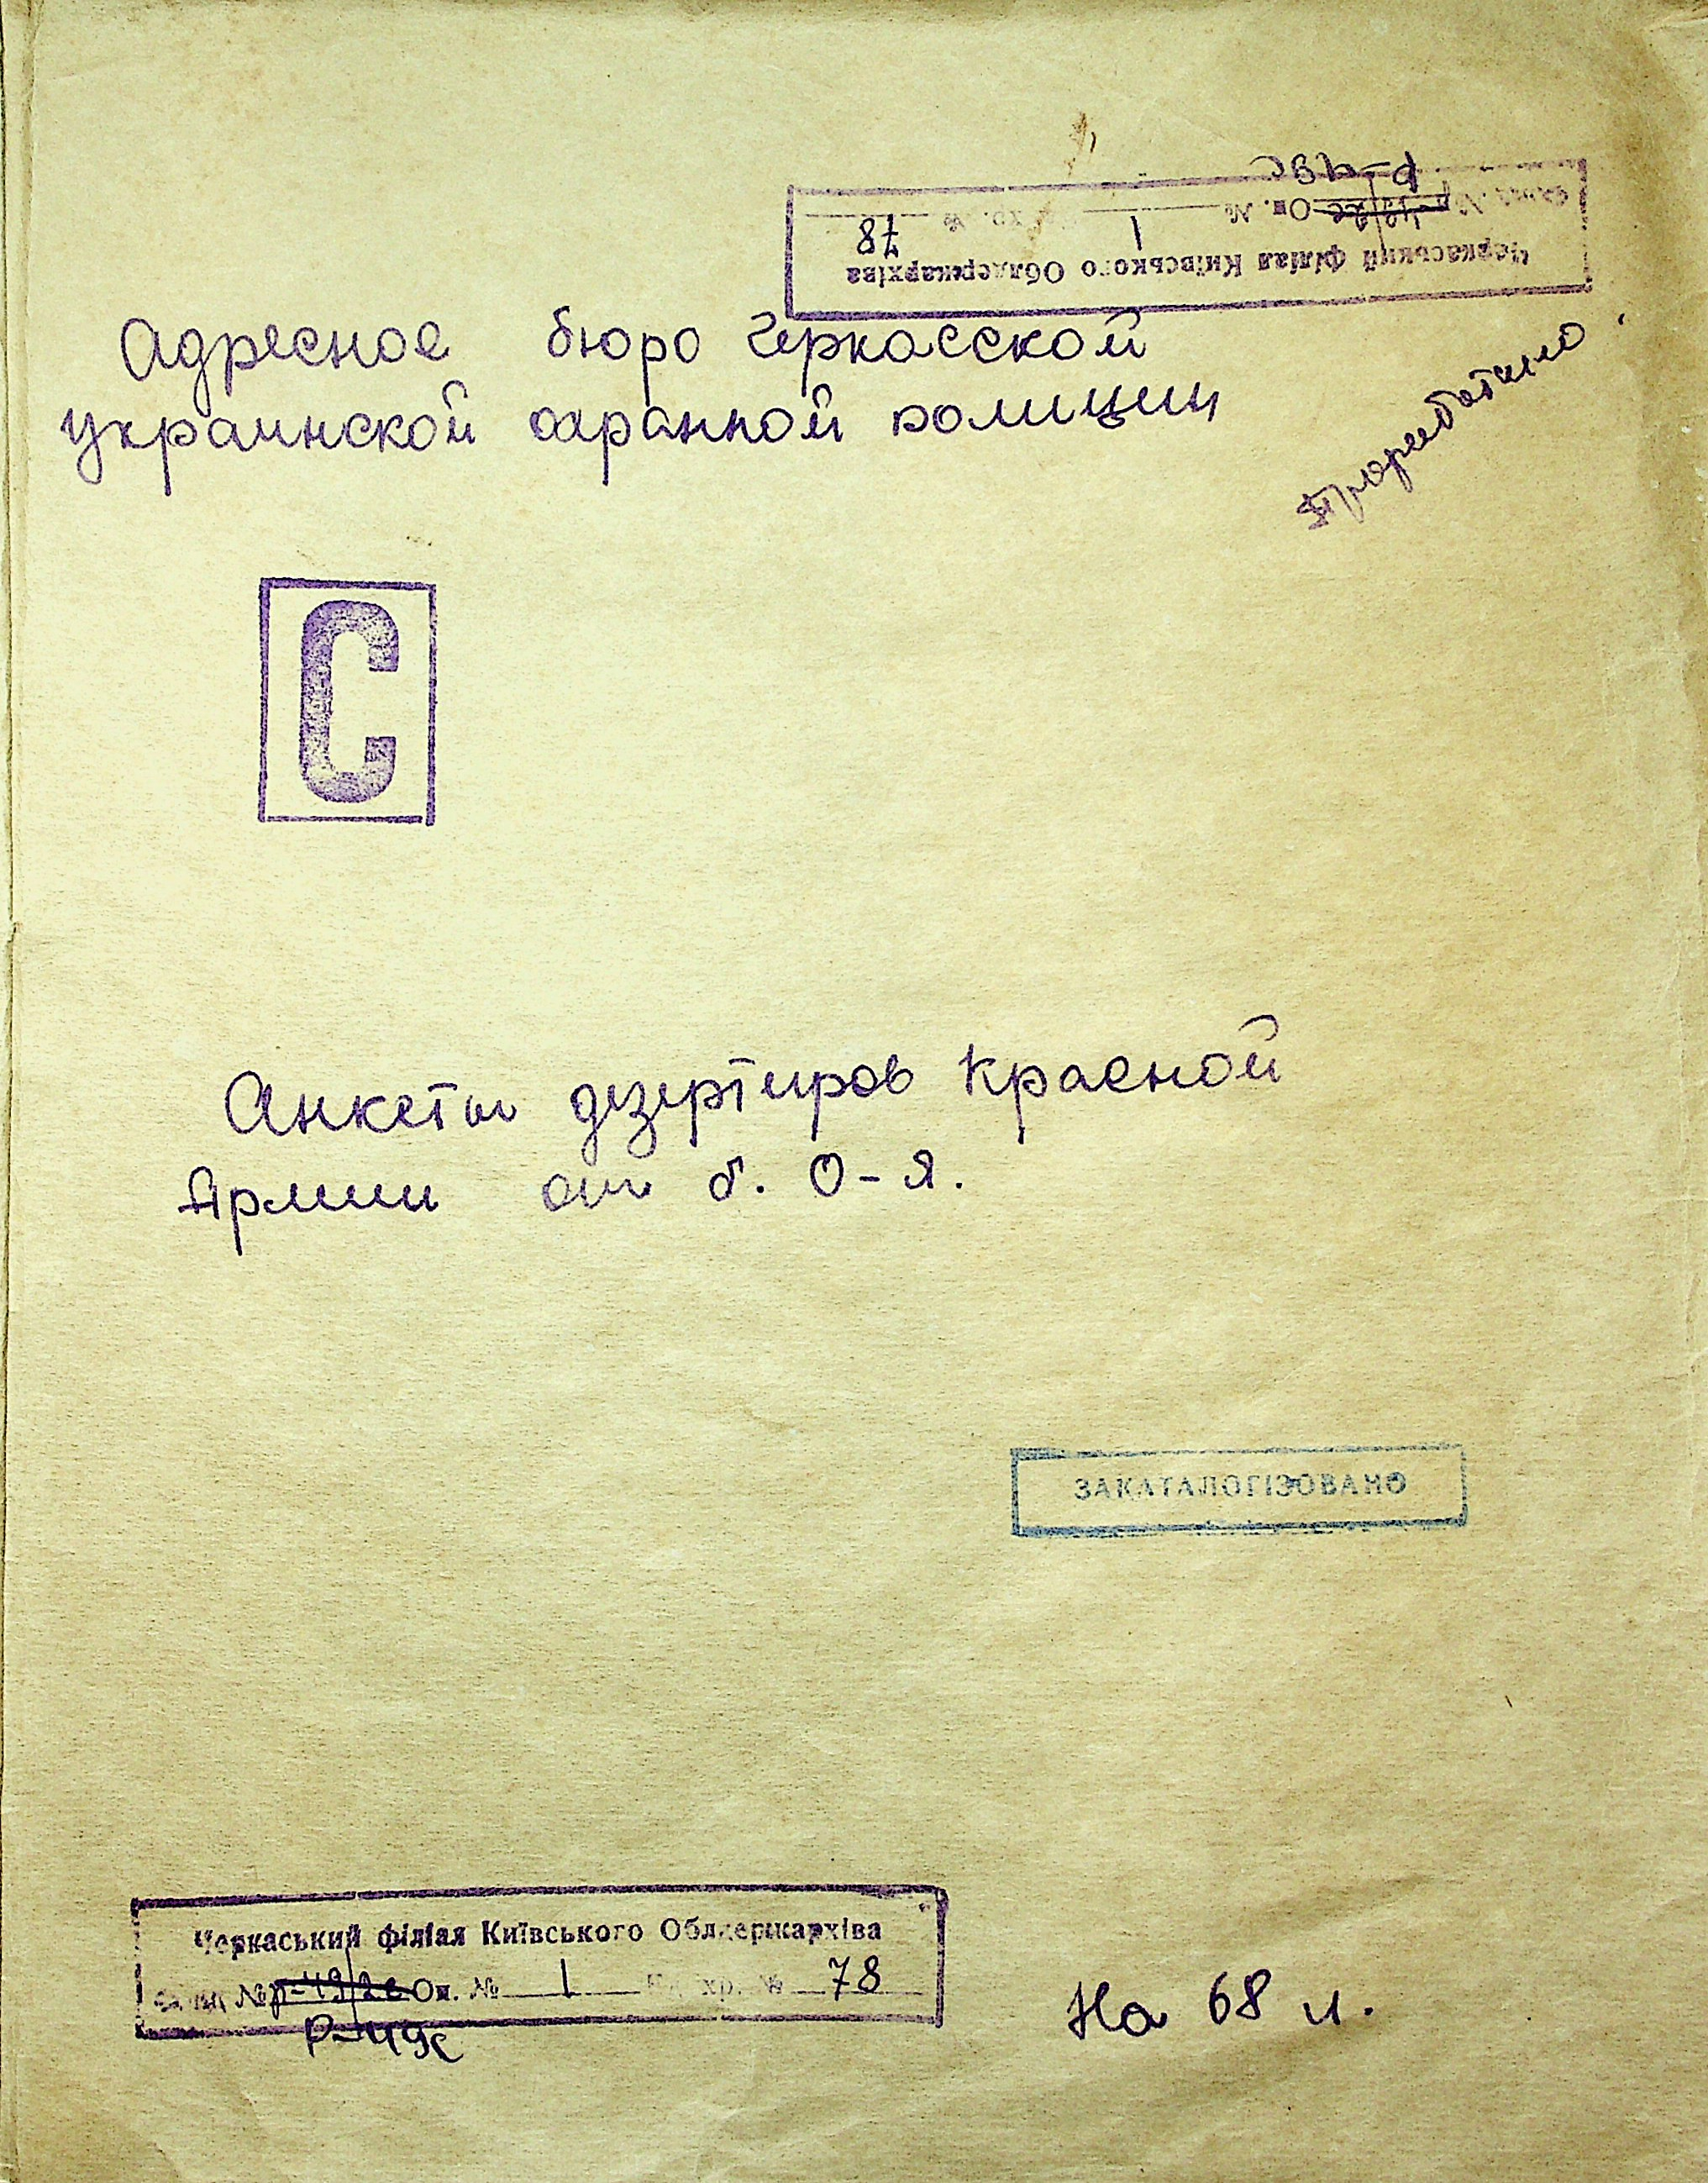 Р-49с
Фонд № Р-49/2с Оп. № 1 Од. хр. № 78
Черкаський філіал Київського Облдержархіва
Адресное бюро Черкасской
украинской охранной полиции
С
Анкеты дезертиров Красной
Армии от б. О-Я.
ЗАКАТАЛОГІЗОВАНО
Черкаський філіал Київського Облдержархіва
№ Р-49/2с Оп. № 1 хр. № 78
Р-49с
На 68 л.